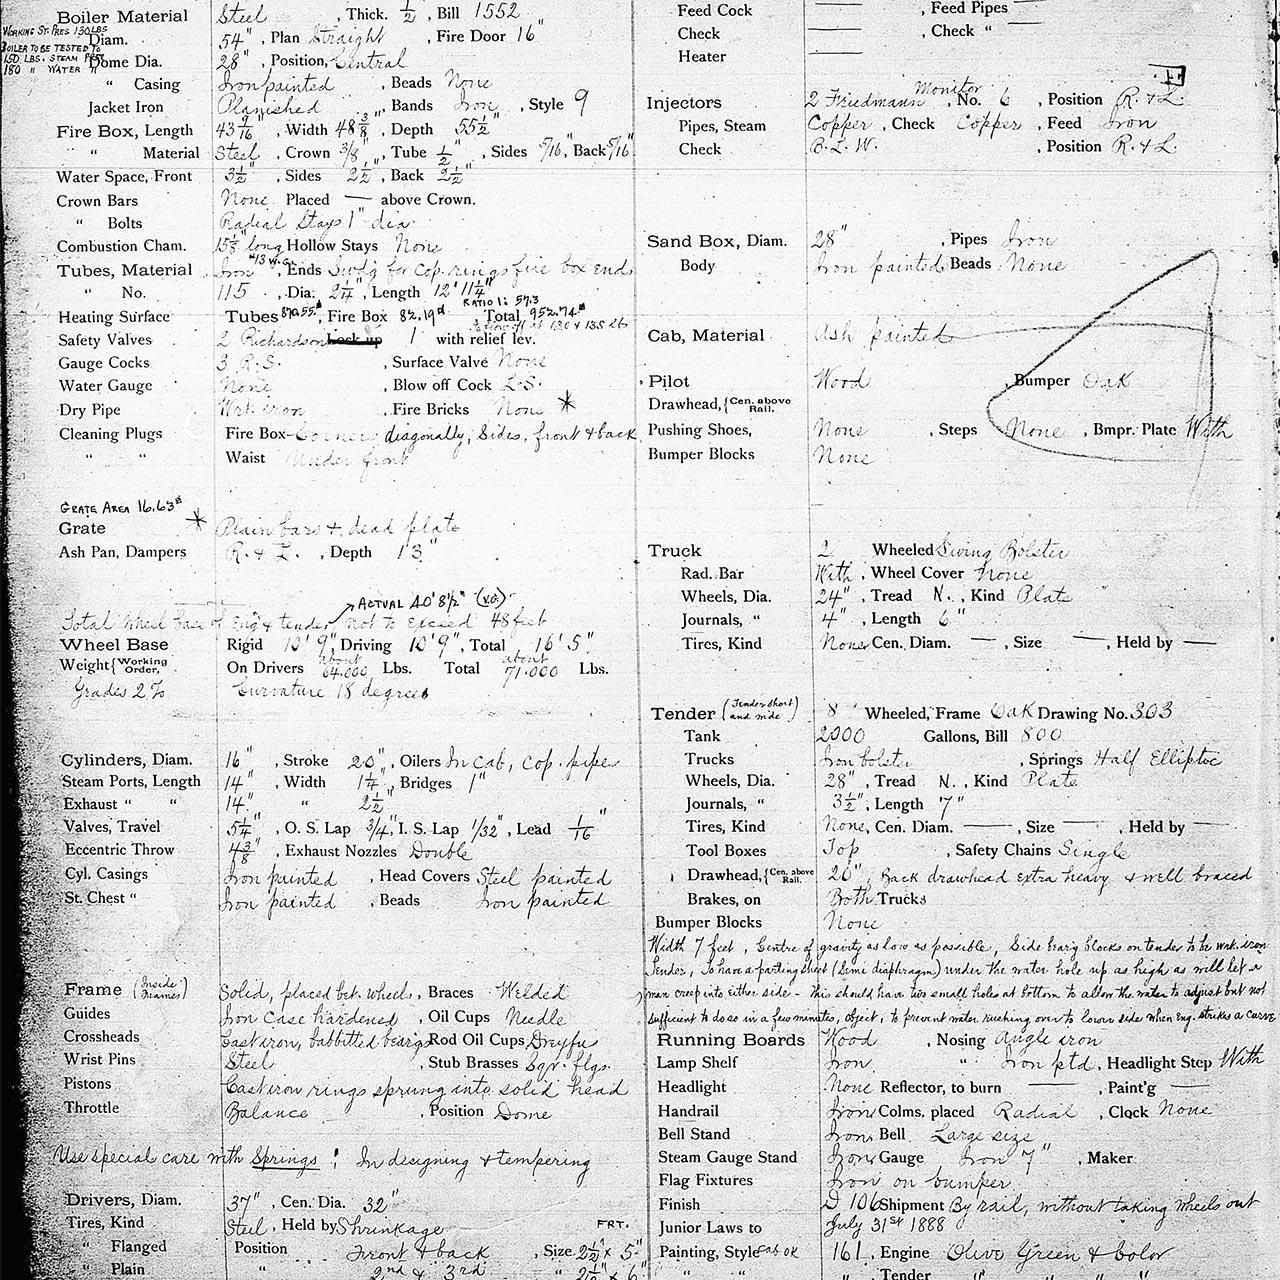 Boiler Material Steel, Thick. 1/2, Bill 1552
WORKING ST. PRES 130 LBS
BOILER TO BE TESTED TO
150 LBS. STEAM PRES
180 " WATER "
Diam. 54", Plan Straight, Fire Door 16"
Dome Dia. 28", Position, Central
" Casing Iron painted, Beads None
Jacket Iron Planished, Bands Iron, Style 9
Fire Box, Length 43 9/16", Width 48 3/8", Depth 55 1/2"
" Material Steel, Crown 3/8", Tube 1/2", Sides 5/16, Back 5/16"
Water Space, Front 3 1/2", Sides 2 1/2", Back 2 1/2"
Crown Bars None Placed — above Crown.
" Bolts Radial Stays 1" dia
Combustion Cham. 15 5/8" long, Hollow Stays None
#13 W.G.
Tubes, Material Iron, Ends Swd'g for cop. rings fire box end
" No. 115, Dia. 2 1/4", Length 12' 11 1/4"
RATIO 1: 57.3
Heating Surface Tubes 870.55, Fire Box 82.19, Total 952.74
to blow off at 130 & 135 lbs
Safety Valves 2 Richardson Lock up 1 with relief lev.
Gauge Cocks 3 R.S., Surface Valve None
Water Gauge None, Blow off Cock L.S.
Dry Pipe Wrt. iron, Fire Bricks None *
Cleaning Plugs Fire Box- Corners diagonally, Sides, front & back
" " Waist Under front
GRATE AREA 16.63
Grate * Plain bars & dead plate
Ash Pan, Dampers R. & L., Depth 1'3"
ACTUAL 40' 8 1/2" (V.G.)
Total wheel base of Eng & tender not to exceed 48 feet
Wheel Base Rigid 10' 9", Driving 10' 9", Total 16' 5"
Weight {Working Order, On Drivers about 64.000 Lbs. Total about 71.000 Lbs.
Grades 2% Curvature 18 degrees
Cylinders, Diam. 16", Stroke 20", Oilers In cab, cop. pipe
Steam Ports, Length 14", Width 1 1/4", Bridges 1"
Exhaust " " 14" " 2 1/2"
Valves, Travel 5 1/4", O. S. Lap 3/4", I. S. Lap 1/32", Lead 1/16"
Eccentric Throw 4 3/8", Exhaust Nozzles Double
Cyl. Casings Iron painted, Head Covers Steel painted
St. Chest " Iron painted, Beads Iron painted
Frame (Inside frames) Solid, placed bet. wheels, Braces Welded
Guides Iron case hardened, Oil Cups Needle
Crossheads Cast iron, babbitted bearings Rod Oil Cups, Dreyfus
Wrist Pins Steel, Stub Brasses Sqr. flgs.
Pistons Cast iron rings sprung into solid head
Throttle Balance, Position Dome
Use special care with Springs! In designing & tempering
Drivers, Diam. 37", Cen. Dia. 32"
Tires, Kind Steel, Held by Shrinkage
FRT.
" Flanged Position Front & back, Size 2 1/2" x 5"
" Plain " 2nd & 3rd " 2 1/2" x 6"
Feed Cock —, Feed Pipes —
Check —, Check " —
Heater —
Monitor
Injectors 2 Friedmann, No. 6, Position R. & L.
Pipes, Steam Copper, Check Copper, Feed Iron
Check B. L. W., Position R. & L.
Sand Box, Diam. 28", Pipes Iron
Body Iron painted, Beads None
Cab, Material Ash painted
Pilot Wood, Bumper Oak
Drawhead, {Cen. above Rail.
Pushing Shoes, None, Steps None, Bmpr. Plate With
Bumper Blocks None
Truck 2 Wheeled Swing Bolster
Rad. Bar With, Wheel Cover None
Wheels, Dia. 24", Tread N., Kind Plate
Journals, " 4", Length 6"
Tires, Kind None, Cen. Diam. —, Size —, Held by —
Tender (Tender short and wide) 8 Wheeled, Frame Oak Drawing No. 303
Tank 2000 Gallons, Bill 800
Trucks Iron bolster, Springs Half Elliptic
Wheels, Dia. 28", Tread N., Kind Plate
Journals, " 3 1/2", Length 7"
Tires, Kind None, Cen. Diam. —, Size —, Held by —
Tool Boxes Top, Safety Chains Single
Drawhead, {Cen. above Rail. 20", Back drawhead extra heavy & well braced
Brakes, on Both Trucks
Bumper Blocks None
Width 7 feet, Centre of gravity as low as possible, Side bear'g blocks on tender to be wrt. iron
Tender, To have a parting sheet (Semi diaphragm) under the water hole up as high as will let a
man creep into either side - this should have two small holes at bottom to allow the water to adjust but not
sufficient to do so in a few minutes, object; to prevent water rushing over to lower side when eng. strikes a curve
Running Boards Wood, Nosing Angle iron
Lamp Shelf Iron " Iron ptd, Headlight Step With
Headlight None Reflector, to burn —, Paint'g —
Handrail Iron, Colms. placed Radial, Clock None
Bell Stand Iron, Bell Large size
Steam Gauge Stand Iron, Gauge Iron 7", Maker
Flag Fixtures Iron on bumper
Finish D 106 Shipment By rail, without taking wheels out
Junior Laws to July 31st 1888
Painting, Style Cab OK 161, Engine Olive Green & Color
" " " Tender " " "